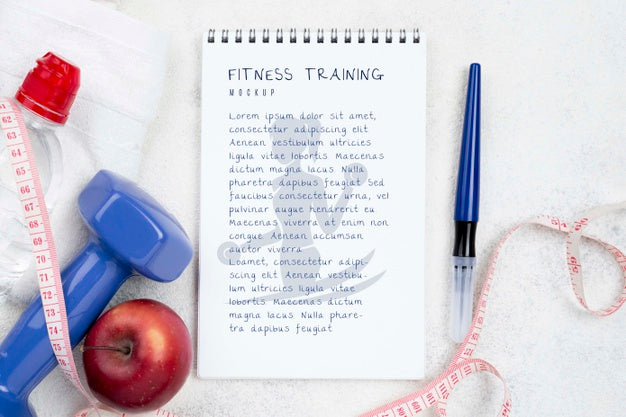 FITNESS TRAINING
MOCKUP
Lorem ipsum dolor sit amet,
consectetur adipiscing elit.
Aenean vestibulum ultricies
ligula vitae lobortis. Maecenas
dictum magna lacus. Nulla
pharetra dapibus feugiat. Sed
faucibus consectetur urna, vel
pulvinar augue hendrerit eu.
Maecenas ut enim rutrum enim non
congue. Aenean accumsan
auctor viverra.
Loamet, consectetur adipi-
scing elit. Aenean vestibu-
lum ultricies ligula vitae
lobortis. Maecenas dictum
magna lacus. Nulla phare-
tra dapibus feugiat
62
63
64
65
66
67
68
69
70
71
72
73
74
75
76